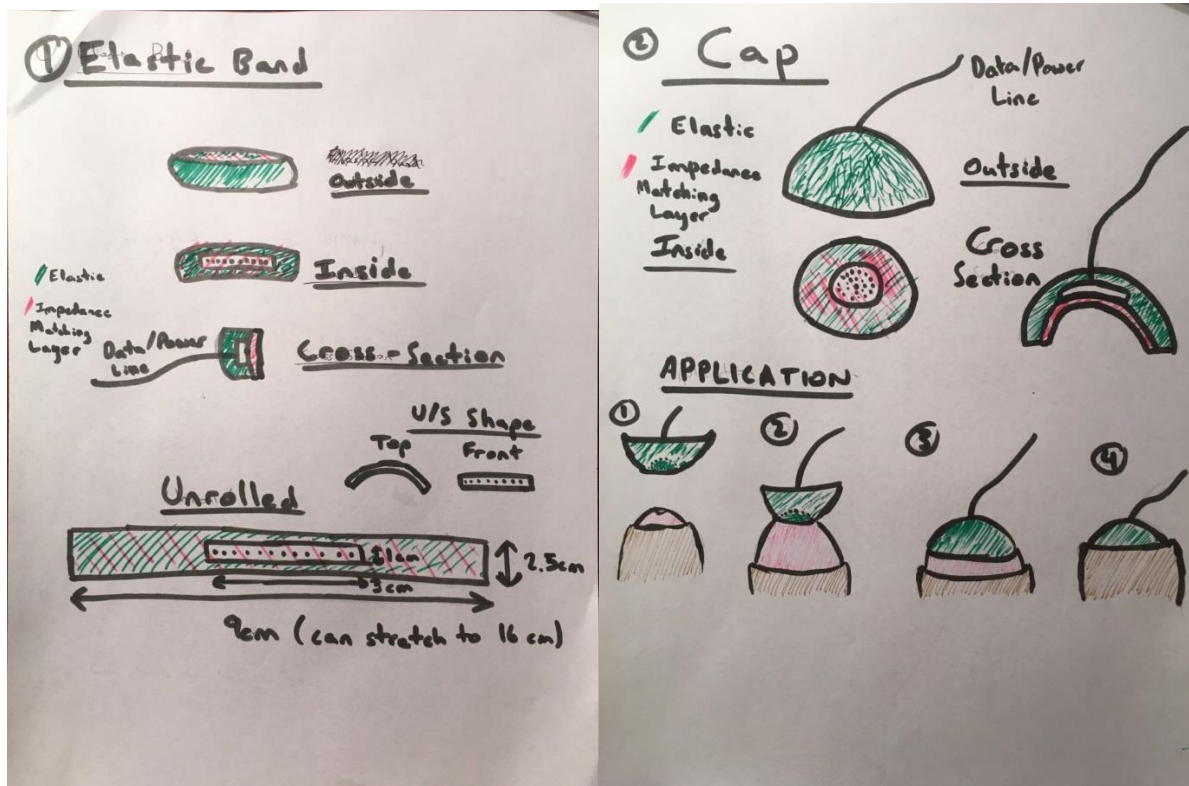 ① Elastic Band
Outside
Inside
Elastic
Impedance
Matching
Layer
Data/Power
Line
Cross-Section
U/S Shape
Top
Front
Unrolled
1cm
3cm
2.5cm
9cm (can stretch to 16 cm)
② Cap
Data/Power
Line
Elastic
Impedance
Matching
Layer
Outside
Inside
Cross
Section
APPLICATION
①
②
③
④